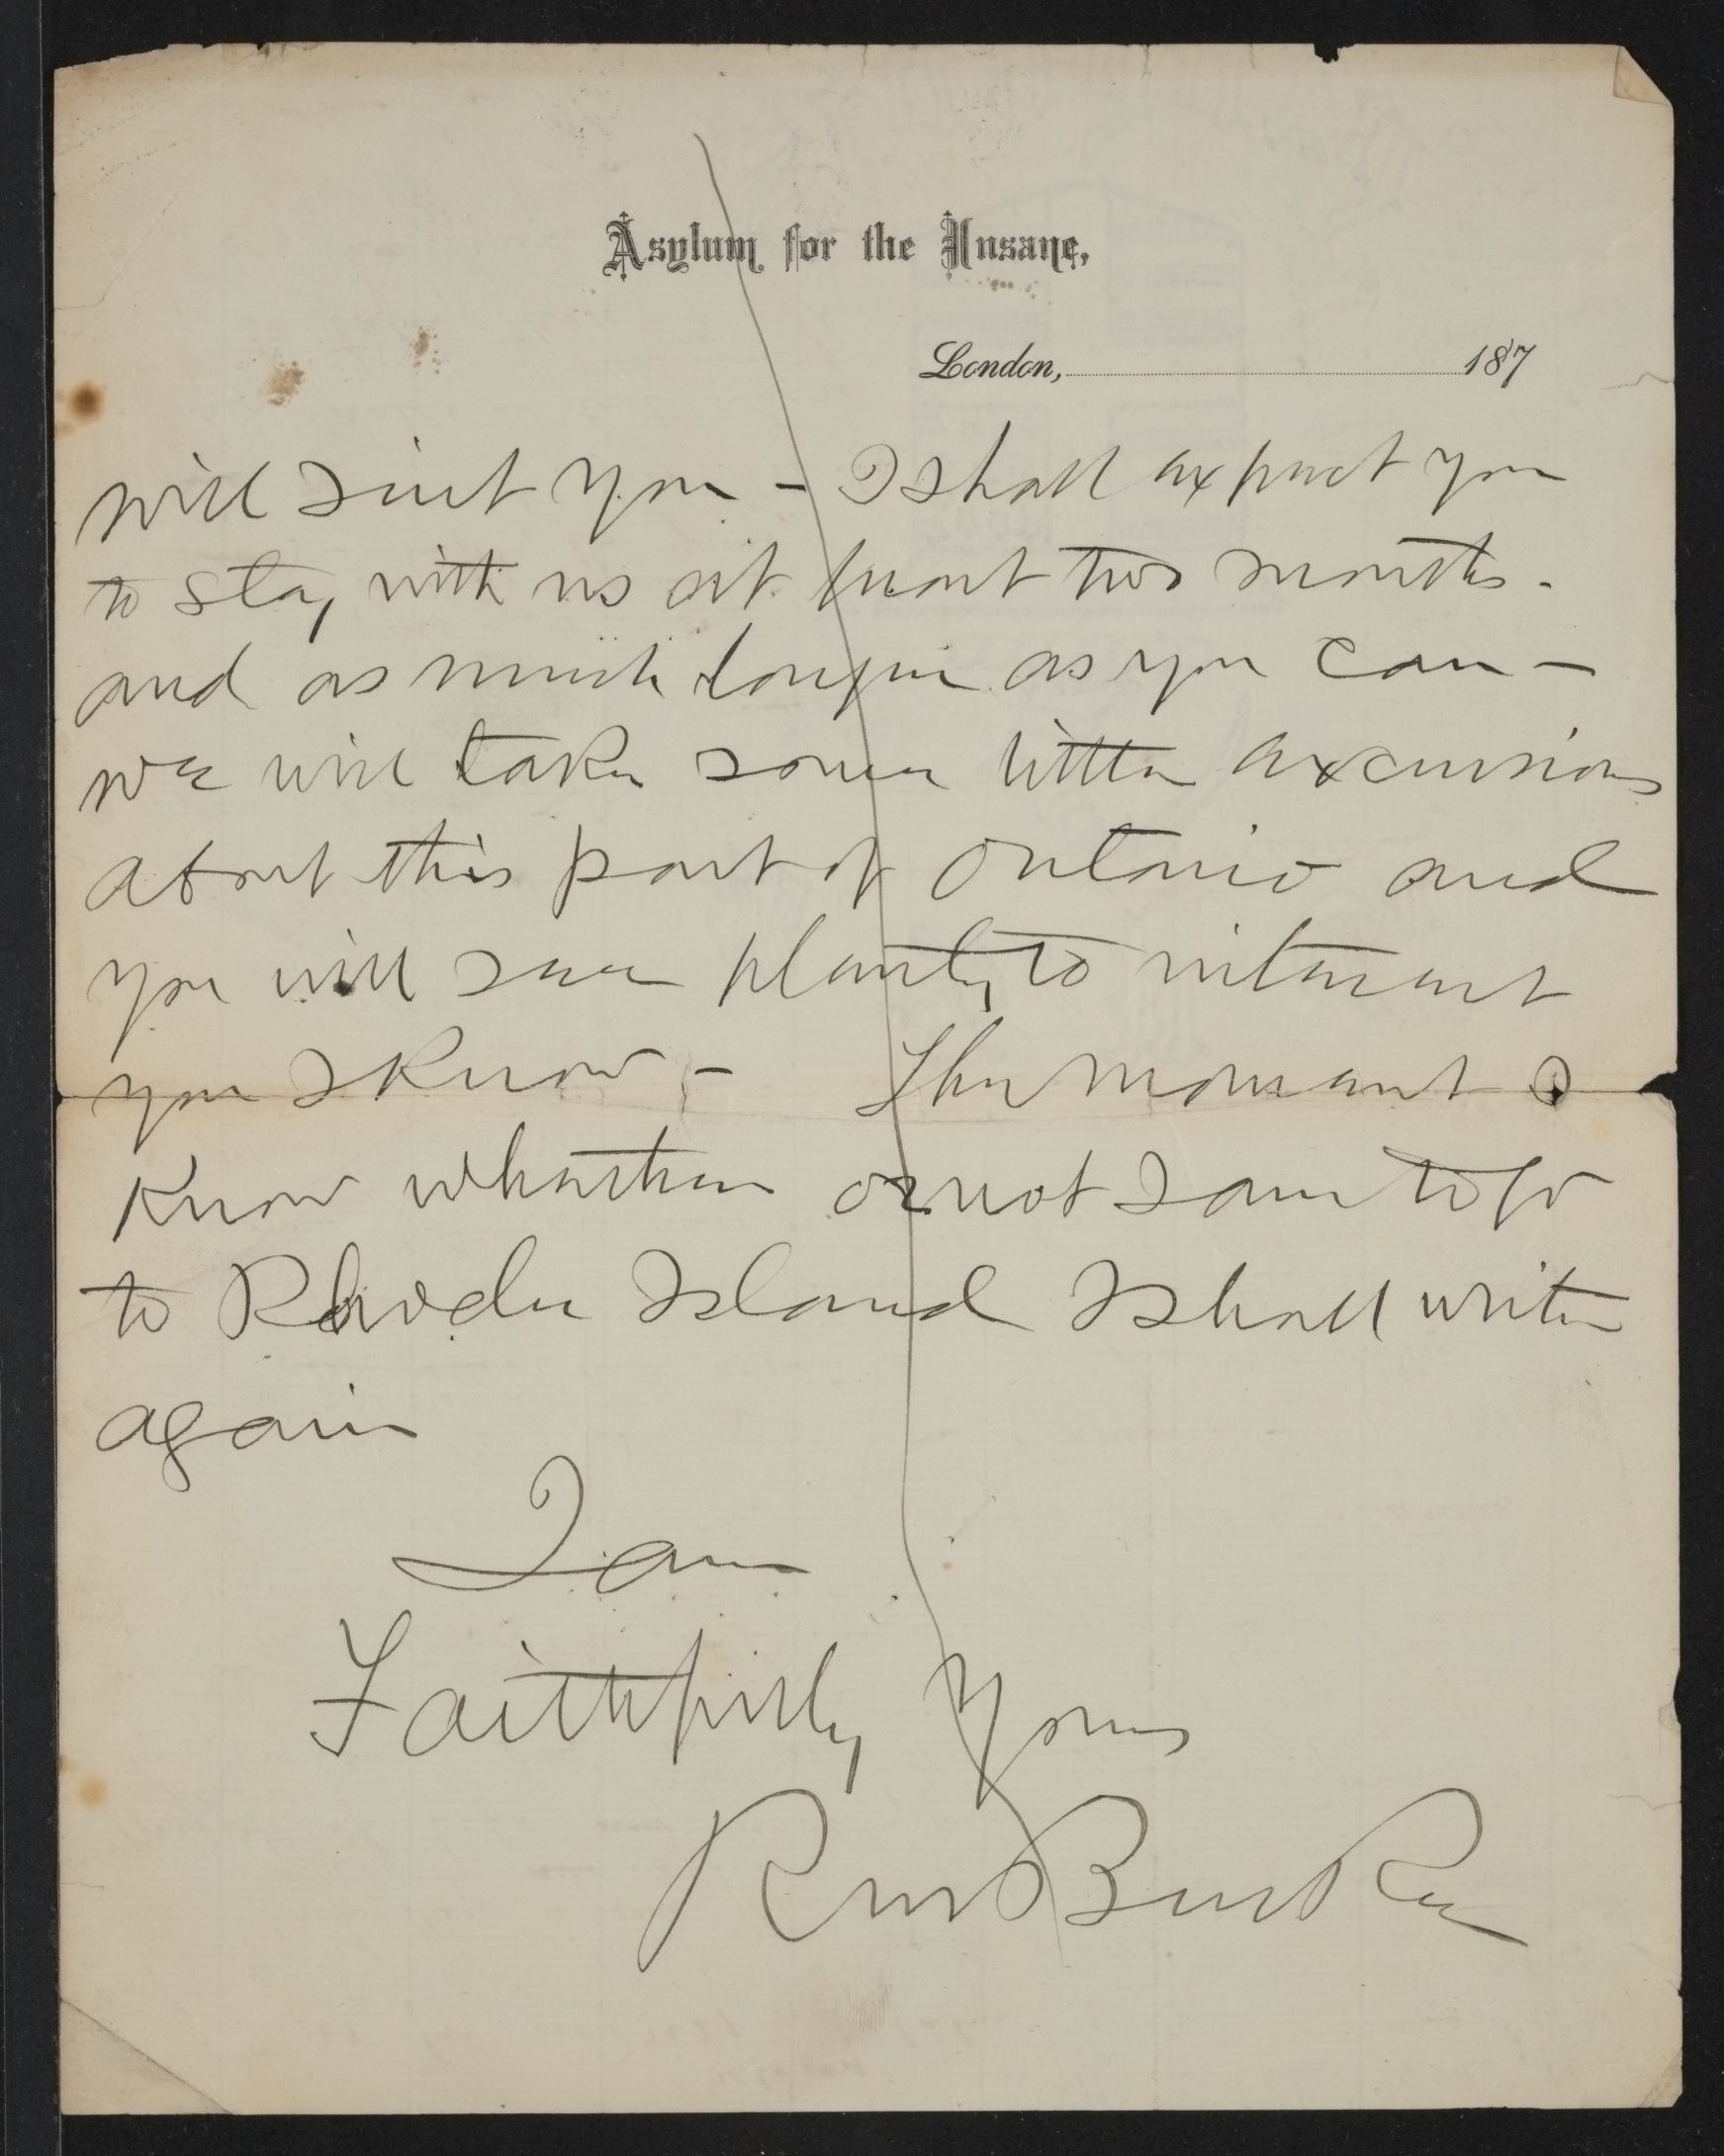 Asylum for the Insane,
London, 187
will suit you - I shall expect you
to stay with us at least two months -
and as much longer as you can -
we will take some little excursions
about this part of Ontario and
you will see plenty to interest
you I know - The moment I
know whether or not I am to go
to Rhode Island I shall write
again
I am
Faithfully Yours
RM Bucke